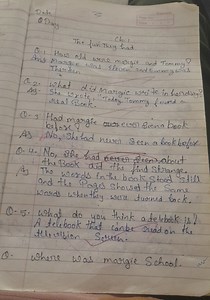 Date
Day
Ch-1
The fun they had
Q-1. How old was margie and Tommy?
Ans Margie was Eleven and Tommy was
Thirteen
Q-2. What did Margie write in her diary?
A, She wrote, "Today Tommy found a
real Book.
Q-3 Had margie ever Seen a book
before
A3 No, She had never Seen a book before
Q-4. Now She had about
the Book did she find Strange
A, The words in the book Stood Still
and the Pages showed the Same
words when they were turned back.
Q-5. What do you think a telebook is?
A telebook that can be read on the
television Screen.
Q. where was margie School.